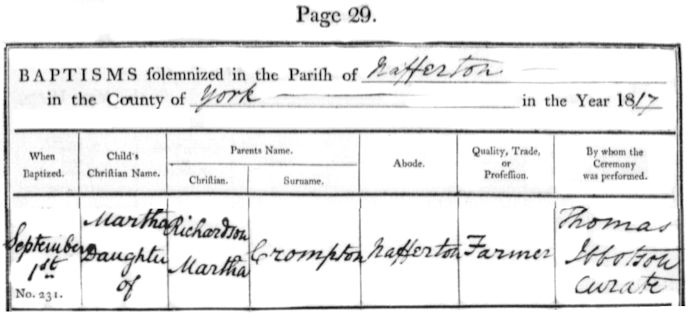 Page 29.
BAPTISMS solemnized in the Parish of Nafferton
in the County of York in the Year 1817
When Baptized.
Child's Christian Name.
Parents Name.
Christian.
Surname.
Abode.
Quality, Trade, or Profession.
By whom the Ceremony was performed.
September 1st
No. 231.
Martha Daughter of
Richardson Martha
Crompton
Nafferton
Farmer
Thomas Ibbotson Curate